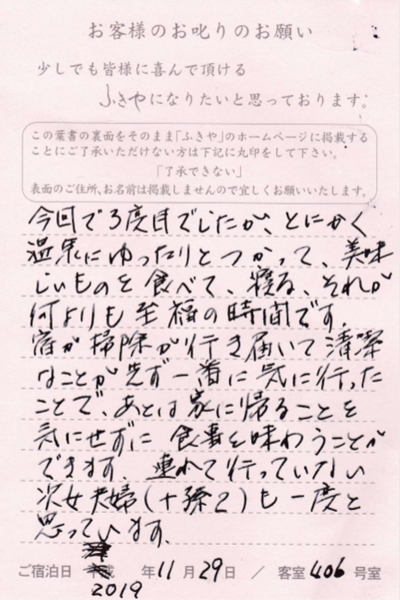 お客様のお叱りのお願い
少しでも皆様に喜んで頂ける
ふきやになりたいと思っております。
この葉書の裏面をそのまま「ふきや」のホームページに掲載する
ことにご了承いただけない方は下記に丸印をして下さい。
「了承できない」
表面のご住所、お名前は掲載しませんので宜しくお願いいたします。
今回で3度目でしたが、とにかく
温泉にゆったりとつかって、美味
しいものを食べて、寝る、それが
何よりも至福の時間です。
宿が掃除が行き届いて清潔
なことが先ず一番に気に行った
ことで、あとは家に帰ることを
気にせずに食事を味わうことが
できます。連れて行っていない
次女夫婦(+孫2)も一度と
思っています。
ご宿泊日 平成 年11月29日 / 客室406号室
2019